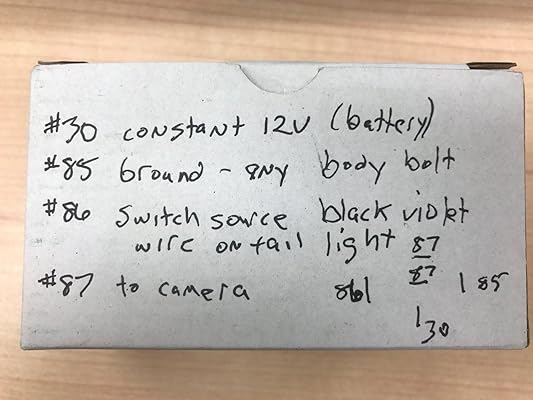 #30 constant 12V (battery)
#85 Ground - any body bolt
#86 switch source black violet
wire on tail light 87
87
#87 to camera 86| | 85
|30